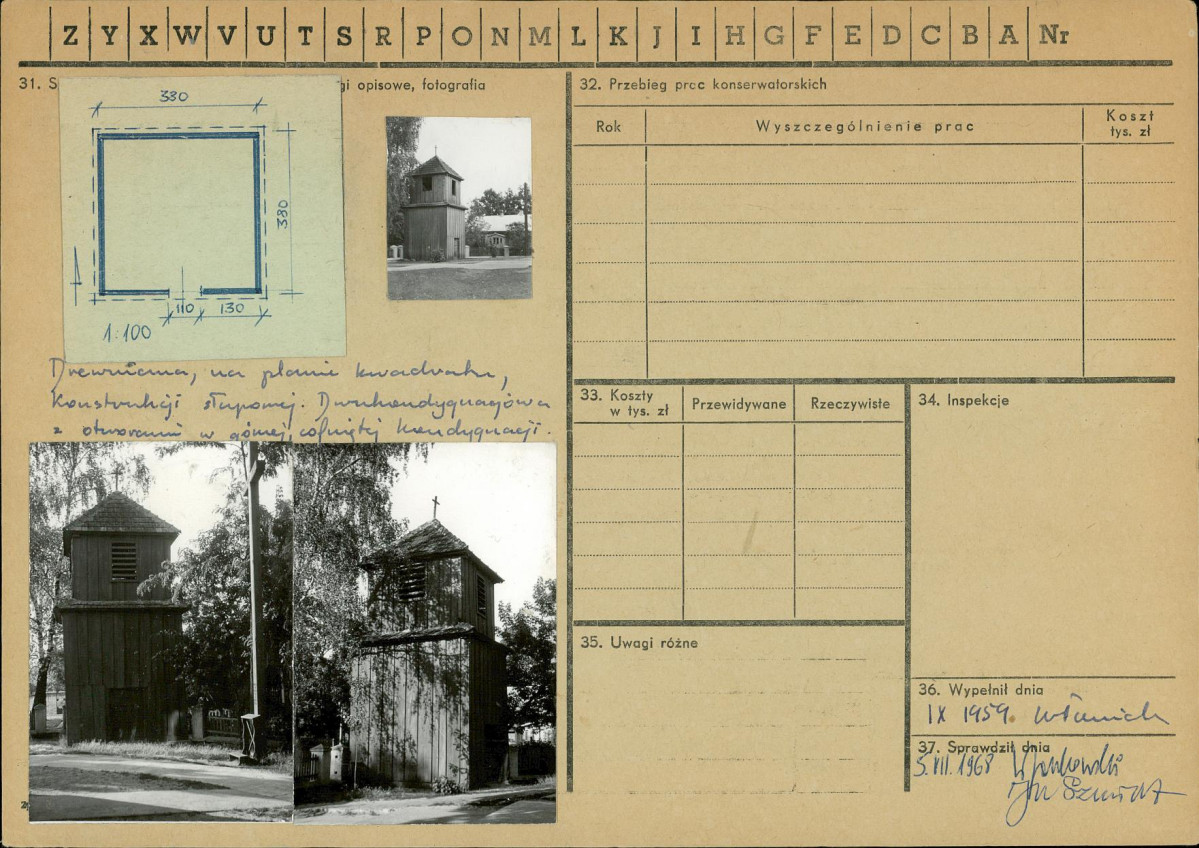 Z Y X W V U T S R P O N M L K J I H G F E D C B A Nr
31. S gi opisowe, fotografia
330
380
110 130
1:100
Drewniana, na planie kwadratu,
konstrukcji słupowej. Dwukondygnacjowa
z otworami w górnej, cofniętej kondygnacji.
32. Przebieg prac konserwatorskich
Rok Wyszczególnienie prac Koszt
tys. zł
33. Koszty
w tys. zł Przewidywane Rzeczywiste
34. Inspekcje
35. Uwagi różne
36. Wypełnił dnia
IX 1959.
37. Sprawdził dnia
5.VII.1968